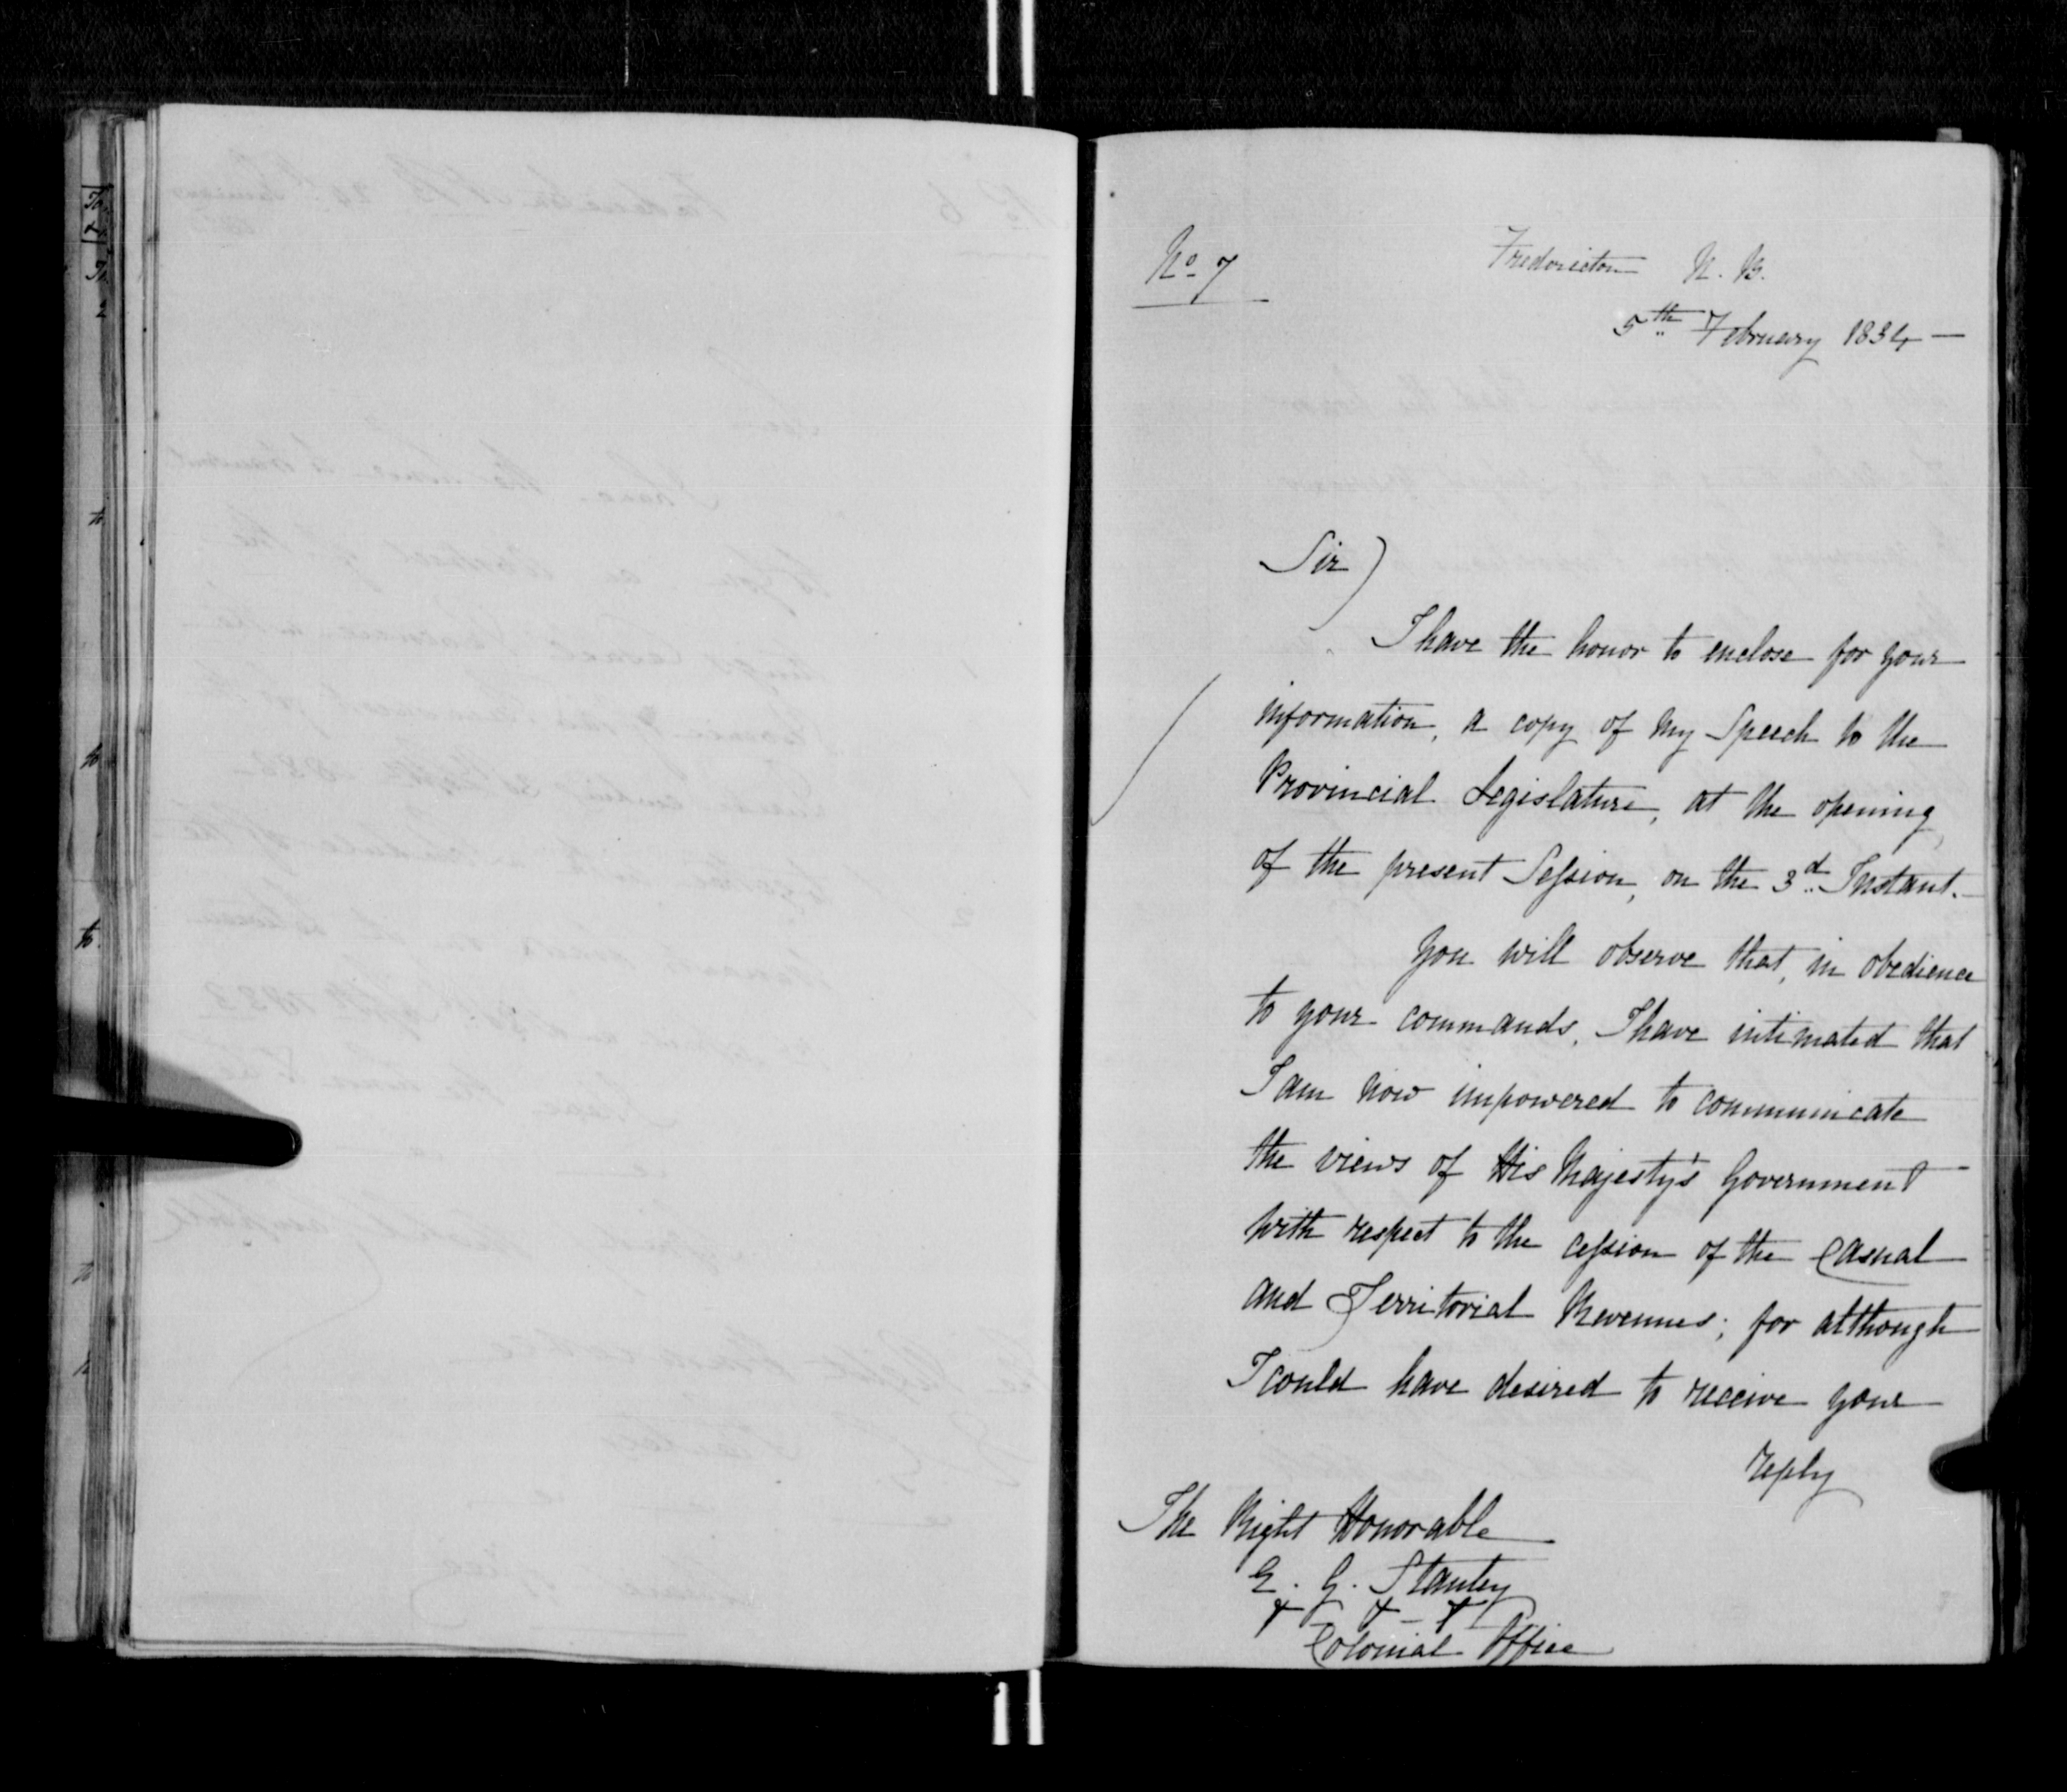 No 7
Fredericton N. B.
5th February 1834 —
Sir
I have the honor to enclose for your
information, a copy of my Speech to the
Provincial Legislature, at the opening
of the present Session, on the 3d Instant. —
You will observe that, in obedience
to your commands, I have intimated that
I am now impowered to communicate
the views of His Majesty's Government
with respect to the cession of the Casual
and Territorial Revenues; for although
I could have desired to receive your
reply
The Right Honorable
E. G. Stanley
Colonial Office